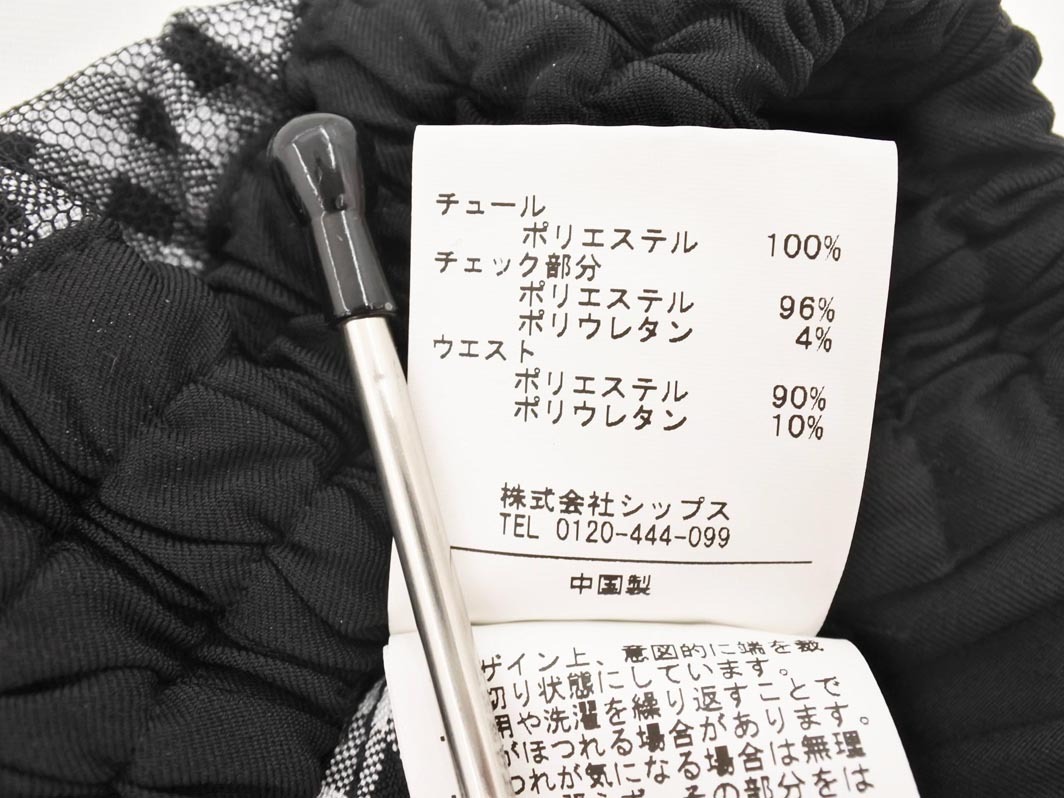 チュール
ポリエステル 100%
チェック部分
ポリエステル 96%
ポリウレタン 4%
ウエスト
ポリエステル 90%
ポリウレタン 10%
株式会社シップス
TEL 0120-444-099
中国製
ザイン上、意図的に端を裁
切り状態にしています。
用や洗濯を繰り返すことで
がほつれる場合があります。
つれが気になる場合は無理
その部分をは